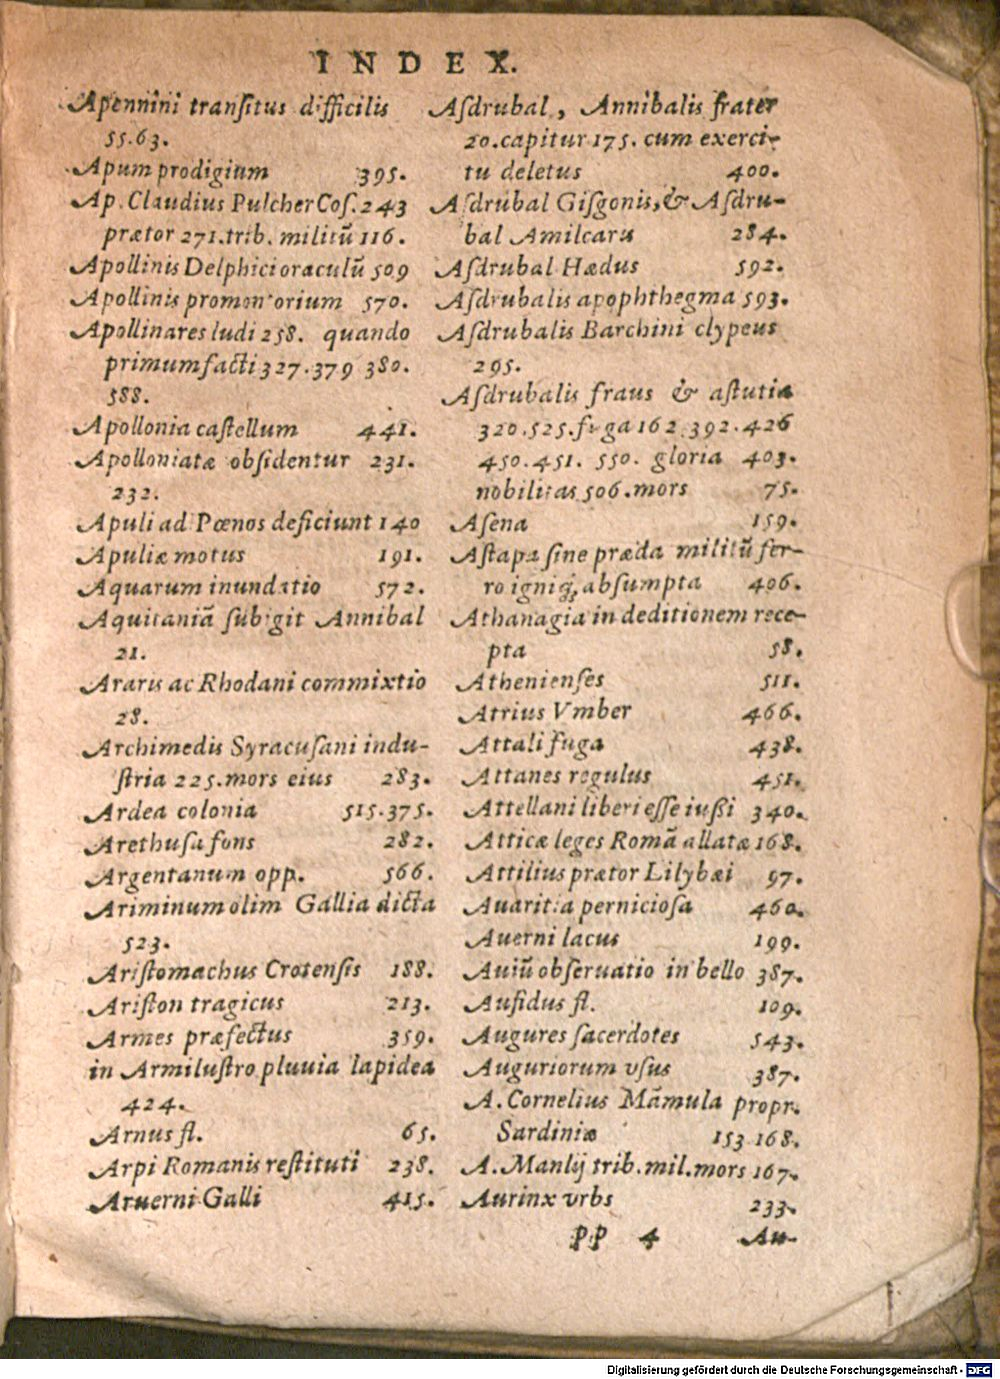 INDEX.
Apennini tranſitus difficilis
55.63.
Apum prodigium 395.
Ap. Claudius Pulcher Coſ. 243
prætor 271. trib. militũ 116.
Apollinis Delphici oraculũ 509
Apollinis promontorium 570.
Apollinares ludi 258. quando
primum facti 327.379 380.
588.
Apollonia caſtellum 441.
Apolloniatæ obſidentur 231.
232.
Apuli ad Pœnos deficiunt 140
Apuliæ motus 191.
Aquarum inundatio 572.
Aquitaniã ſubigit Annibal
21.
Araris ac Rhodani commixtio
28.
Archimedis Syracuſani indu-
ſtria 225. mors eius 283.
Ardea colonia 515.375.
Arethuſa fons 282.
Argentanum opp. 566.
Ariminum olim Gallia dicta
523.
Ariſtomachus Crotenſis 188.
Ariſton tragicus 213.
Armes præfectus 359.
in Armiluſtro pluuia lapidea
424.
Arnus fl. 65.
Arpi Romanis reſtituti 238.
Aruerni Galli 415.
Aſdrubal, Annibalis frater
20. capitur 175. cum exerci-
tu deletus 400.
Aſdrubal Giſgonis, & Aſdru-
bal Amilcaris 284.
Aſdrubal Hædus 592.
Aſdrubalis apophthegma 593.
Aſdrubalis Barchini clypeus
295.
Aſdrubalis fraus & aſtutia
320.525. fuga 162.392.426
450.451. 550. gloria 403.
nobilitas 506. mors 75.
Aſena 159.
Aſtapa ſine præda militũ fer-
ro igniq; abſumpta 406.
Athanagia in deditionem rece-
pta 58.
Athenienſes 511.
Atrius Vmber 466.
Attali fuga 438.
Attanes regulus 451.
Attellani liberi eſſe iußi 340.
Atticæ leges Romã allatæ 168.
Attilius prætor Lilybæi 97.
Auaritia pernicioſa 460.
Auerni lacus 199.
Auiũ obſeruatio in bello 387.
Aufidus fl. 109.
Augures ſacerdotes 543.
Auguriorum vſus 387.
A. Cornelius Mãmula propr.
Sardiniæ 153 168.
A. Manlij trib. mil. mors 167.
Aurinx vrbs 233.
pp 4 Au-
Digitalisierung gefördert durch die Deutsche Forschungsgemeinschaft - DFG